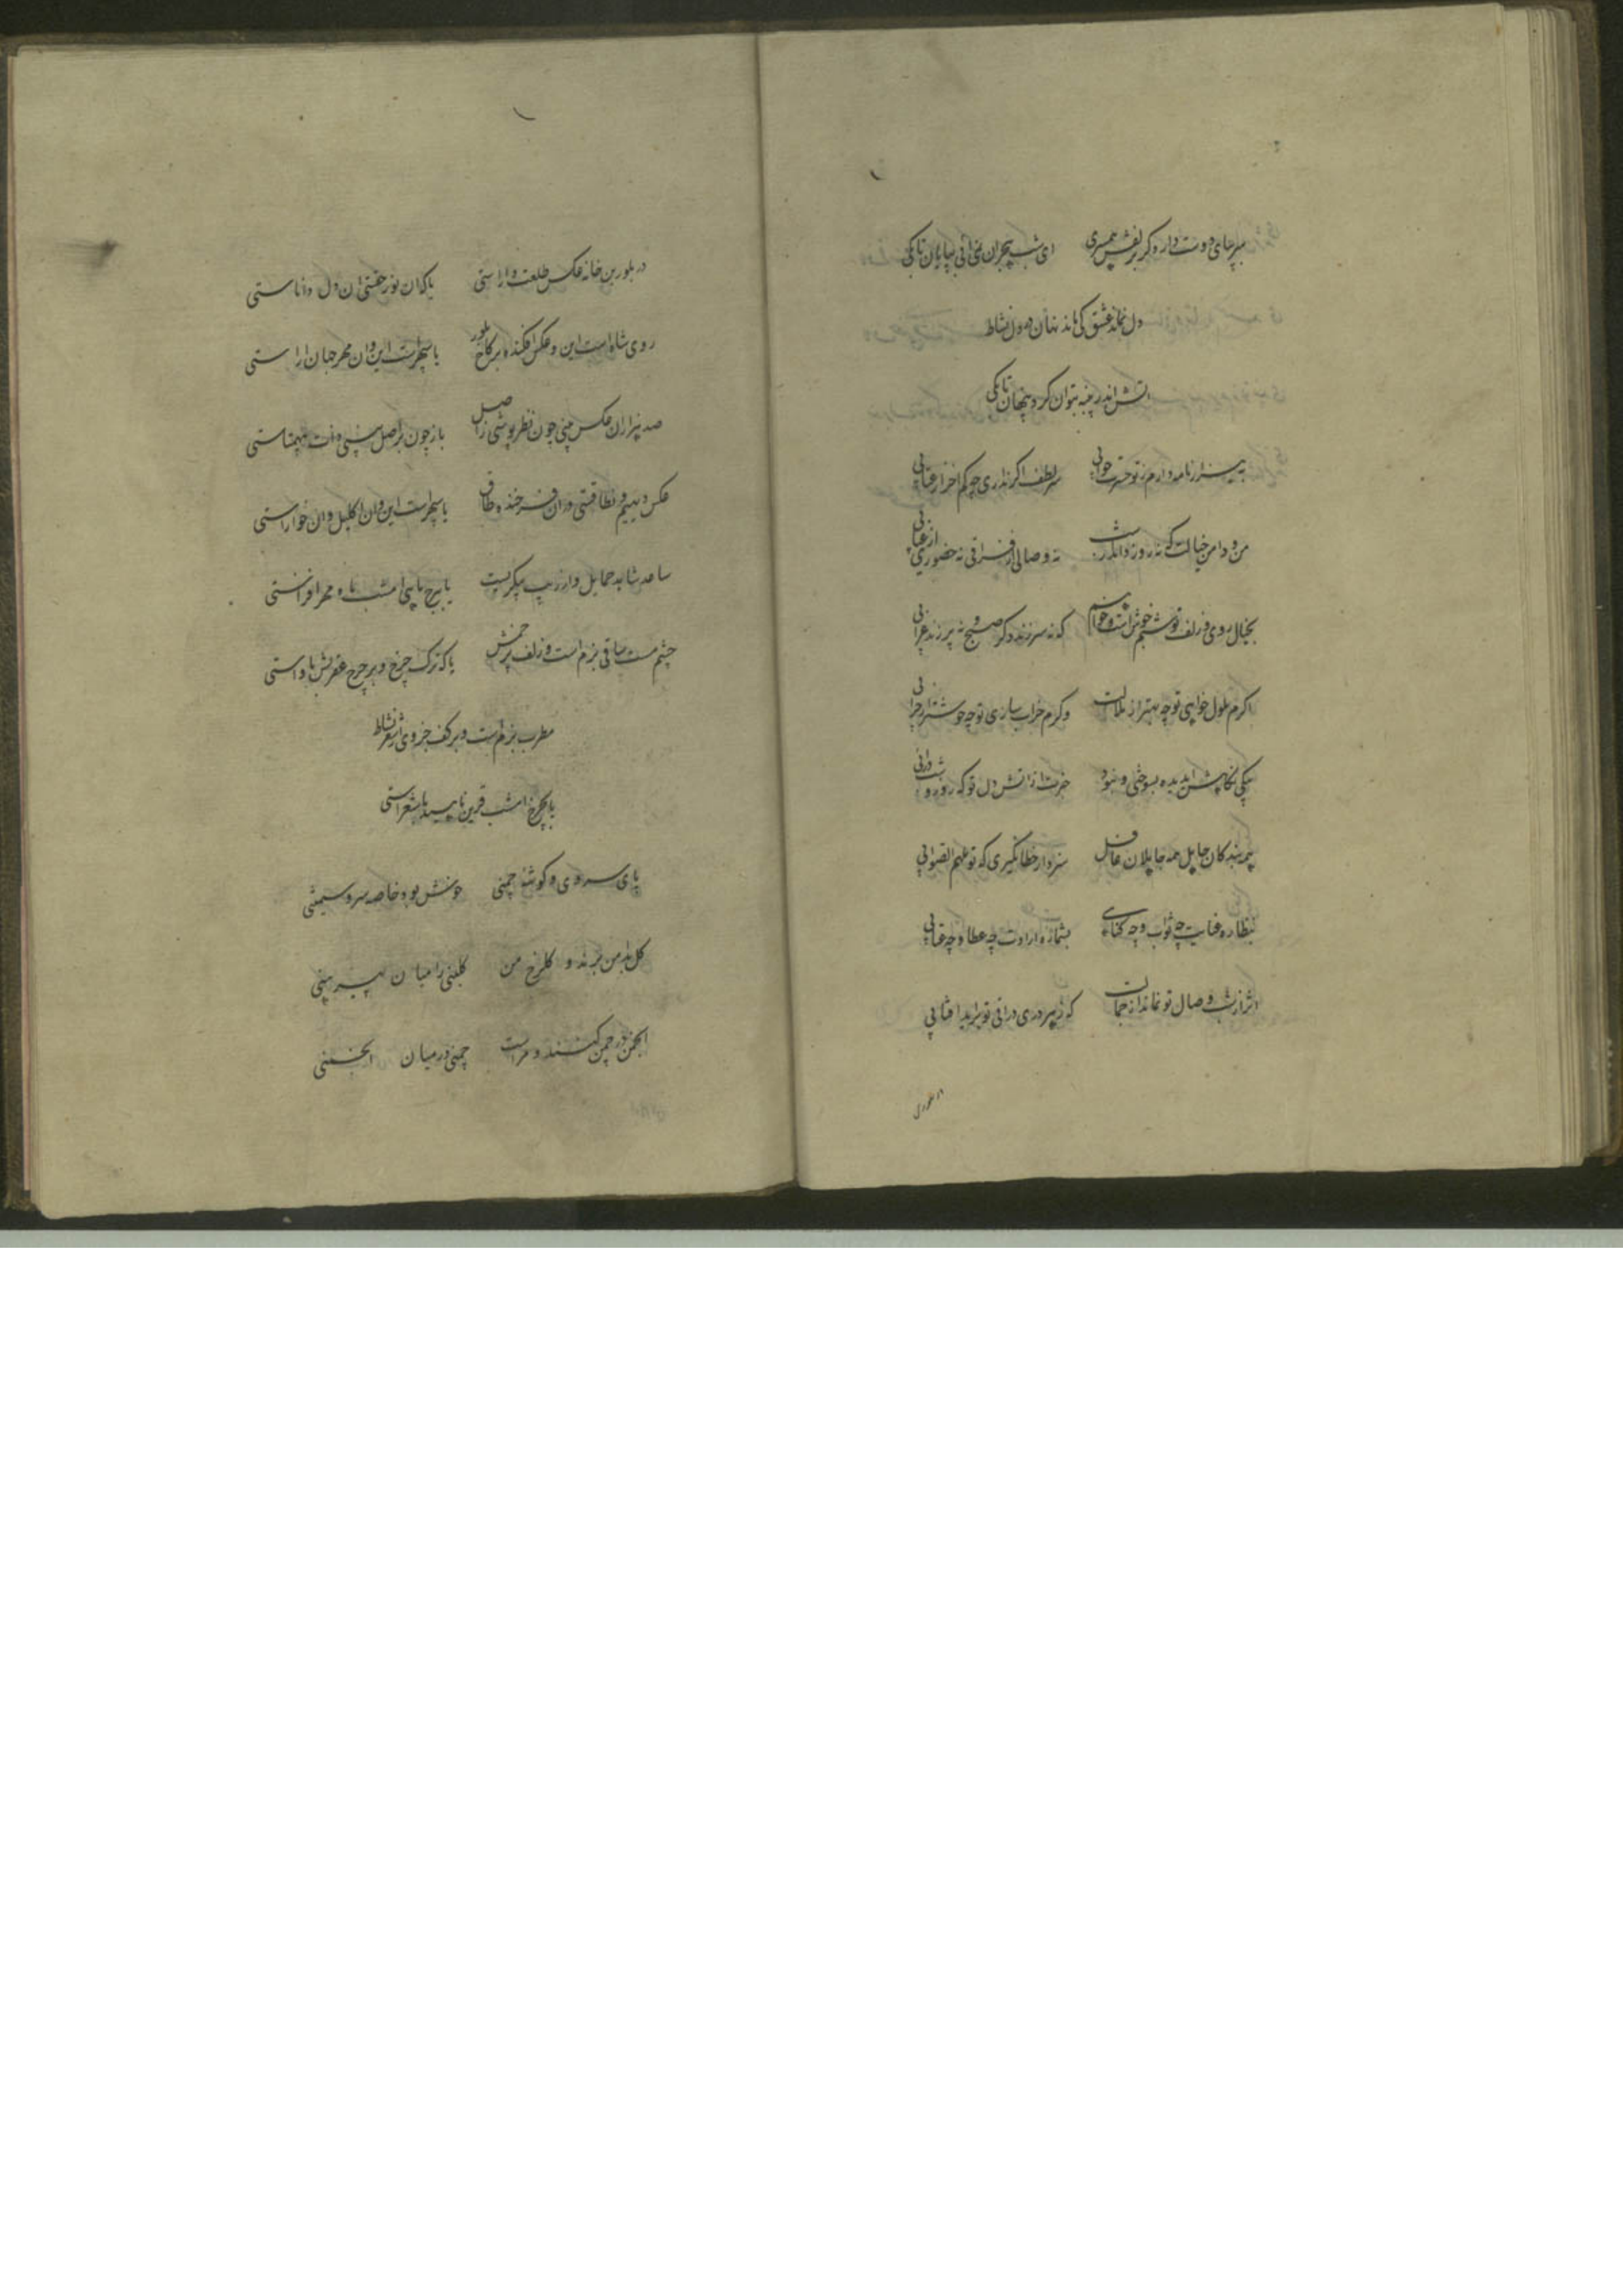 بپر جای دوست دارد کر بزلفش همسری ای شب هجران نمی آئی بپایان تا بکی
دل نماند عشق کی ماند نهان در دل نشاط
آتش اندر پنبه بتوان کرد پنهان تا بکی
نه سزار نامه دارم ز تو حسرت جوابی سر لطف اگر نداری چه کم آخر از عتابی
من و دامن خیالت که نه روز داند و شب نه وصالی از فراقی نه حضوری از غیابی
بخیال روی و زلف تو شبم خوش است و خواهم که نه سر زند دگر صبح و نه پر زند غرابی
اگرم ملول خواهی تو چه بهتر از ملالت وگرم خراب سازی تو چه خوشتر از خرابی
یکی نگاهش ای دیده بسوختی و نبود خبرت از آتش دل تو که روز و شب در آبی
همه بندگان جاهل همه جاهلان غافل سزد ار خطا نگیری که تو ملهم الصوابی
بنظاره عنایت چه ثواب و چه گناهی بشماره ارادت چه عطا و چه عقابی
اثر از شب وصال تو نماند از جمالت که ز هر دری درائی تو برآید آفتابی
در بلورین
در بلورین خانه عکس طلعت داراستی یا که آن نور حقستی آن دل داناستی
روی شاه است این و عکس افکنده بر کاخ بلور یا سپهر است این و آن مهر جهان آراستی
صد هزاران عکس بینی چون نظر پوشی ز اصل باز چون بر اصل بینی ذات بیهمتاستی
عکس دیهیم و نطاقستی در آن فرخنده طاق یا سپهر است این و آن اکلیل و آن جوزاستی
ساعد شاهد حمایل وار زیب پیکریست یا ببرج ماهی امشب ماه و مهر افزاستی
چشم مست ساقی بزم است و زلف پر خمش یا که ترک چرخ و بر چرخ عقربش ماواستی
مطرب بزم است و بر کف جزوی از شعر نشاط
یا بچرخ امشب قرین ناهید با شعراستی
پای سروی و گوشه چمنی خوش بود خاصه سرو سیمتنی
گل بدامن برند و گلرخ من گلبنی را میان پیرهنی
انجمن در چمن کنند و مراست چمنی در میان انجمنی